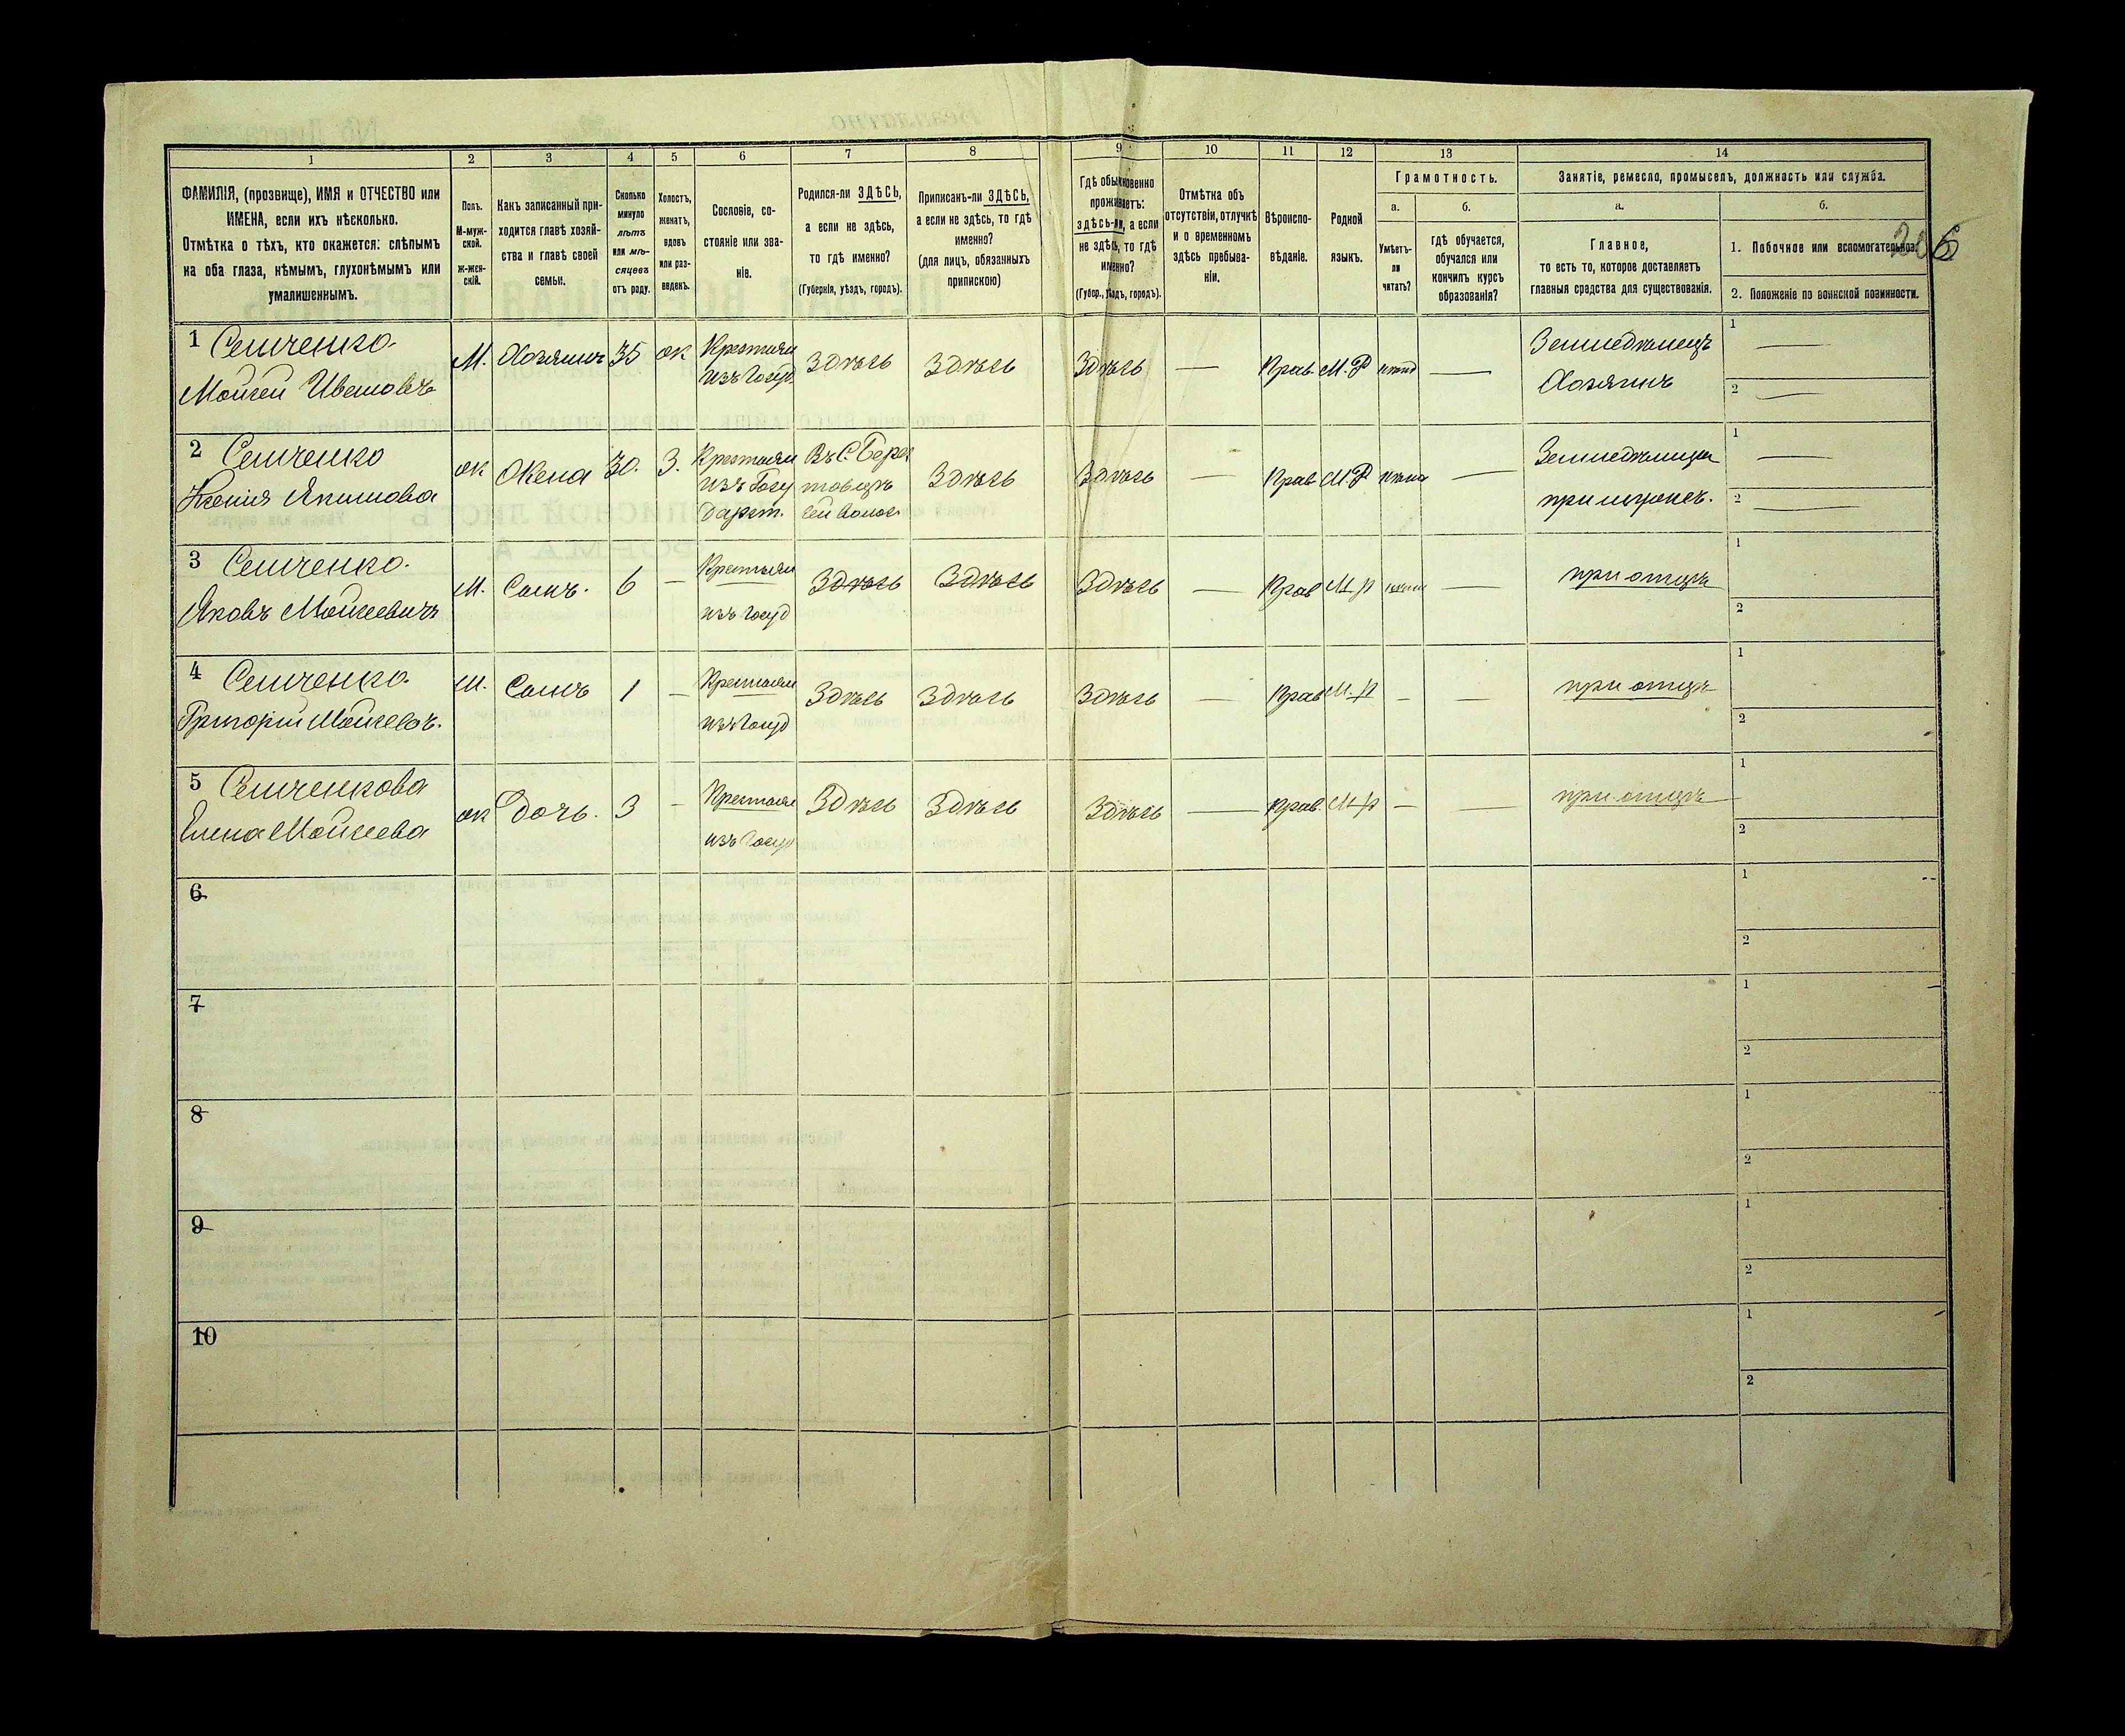 1 2 3 4 5 6 7 8 9 10 11 12 13 14
ФАМИЛІЯ, (прозвище), ИМЯ и ОТЧЕСТВО или
ИМЕНА, если ихъ нѣсколько.
Отмѣтка о тѣхъ, кто окажется: слѣпымъ
на оба глаза, нѣмымъ, глухонѣмымъ или
умалишеннымъ.
Полъ.
М-муж-
ской.
ж-жен-
скій.
Какъ записанный при-
ходится главѣ хозяй-
ства и главѣ своей
семьи.
Сколько
минуло
лѣтъ
или мѣ-
сяцевъ
отъ роду.
Холостъ,
женатъ,
вдовъ
или раз-
веденъ.
Сословіе, со-
стояніе или зва-
ніе.
Родился-ли ЗДѢСЬ,
а если не здѣсь,
то гдѣ именно?
(Губернія, уѣздъ, городъ).
Приписанъ-ли ЗДѢСЬ,
а если не здѣсь, то гдѣ
именно?
(для лицъ, обязанныхъ
припискою)
Гдѣ обыкновенно
проживаетъ:
здѣсь-ли, а если
не здѣсь, то гдѣ
именно?
(Губер., уѣздъ, городъ).
Отмѣтка объ
отсутствіи, отлучкѣ
и о временномъ
здѣсь пребыва-
ніи.
Вѣроиспо-
вѣданіе.
Родной
языкъ.
Грамотность.
а.
Умѣетъ-
ли
читать?
б.
гдѣ обучается,
обучался или
кончилъ курсъ
образованія?
Занятіе, ремесло, промыселъ, должность или служба.
а.
Главное,
то есть то, которое доставляетъ
главныя средства для существованія.
б.
1. Побочное или вспомогательное.
2. Положеніе по воинской повинности.
1 Семченко
Мойсей Ивановъ
М. Хозяинъ 35 ж
Крестьян
изъ Госуд.
Здѣсь Здѣсь Здѣсь — Прав. М.Р —
Земледѣлецъ
Хозяинъ
1 —
2 —
2 Семченко
Ксенія Якимова
ж Жена 30. З.
Крестьян
изъ Госу
дарст.
Въ С. Берес
товцѣ
сей волос
Здѣсь Здѣсь — Прав М.Р —
Земледѣлица
при мужѣ.
1 —
2 —
3 Семченко.
Яковъ Мойсеевичъ
М. Сынъ. 6 —
Крестьян
изъ Госуд
Здѣсь Здѣсь Здѣсь — Прав М.р —
при отцѣ
1
2
4 Семченко
Григорій Мойсеевъ.
М. Сынъ 1 —
Крестьян
изъ Госуд
Здѣсь Здѣсь Здѣсь — Прав М.р — —
при отцѣ
1
2
5 Семченкова
Елена Мойсеева
ж дочь. 3 —
Крестьян
изъ Госуд
Здѣсь Здѣсь Здѣсь — Прав. М.р — —
при отцѣ
1
2
6
1
2
7
1
2
8
1
2
9
1
2
10
1
2